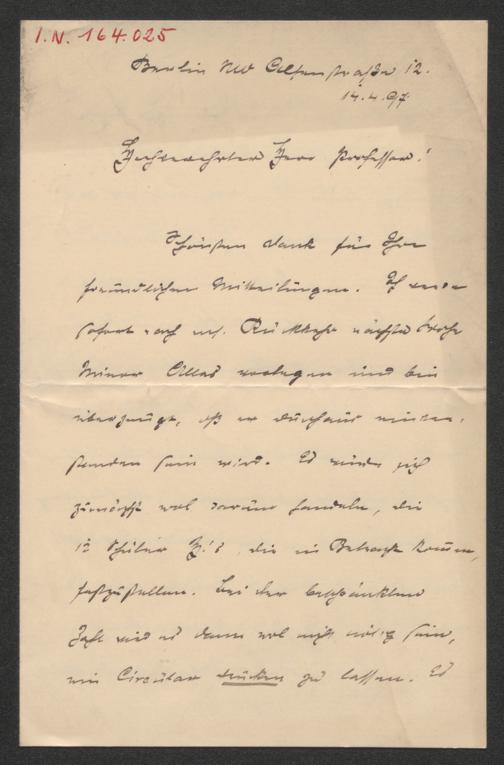 I.N. 164.025
Berlin NW Alsenstraße 12.
14.4.97.
Hochverehrter Herr Professor!
Schönsten Dank für Ihre
freundlichen Mitteilungen. Ich werde
sofort nach m. Rückkehr nächste Woche
Minor Alles vorlegen und bin
überzeugt, daß er durchaus einver-
standen sein wird. Es würde sich
zunächst wol darum handeln, die
12 Schüler Z.'s, die in Betracht kommen,
festzustellen. Bei der beschränkten
Zahl wird es dann wol nicht nötig sein,
ein Circular drucken zu lassen. Es